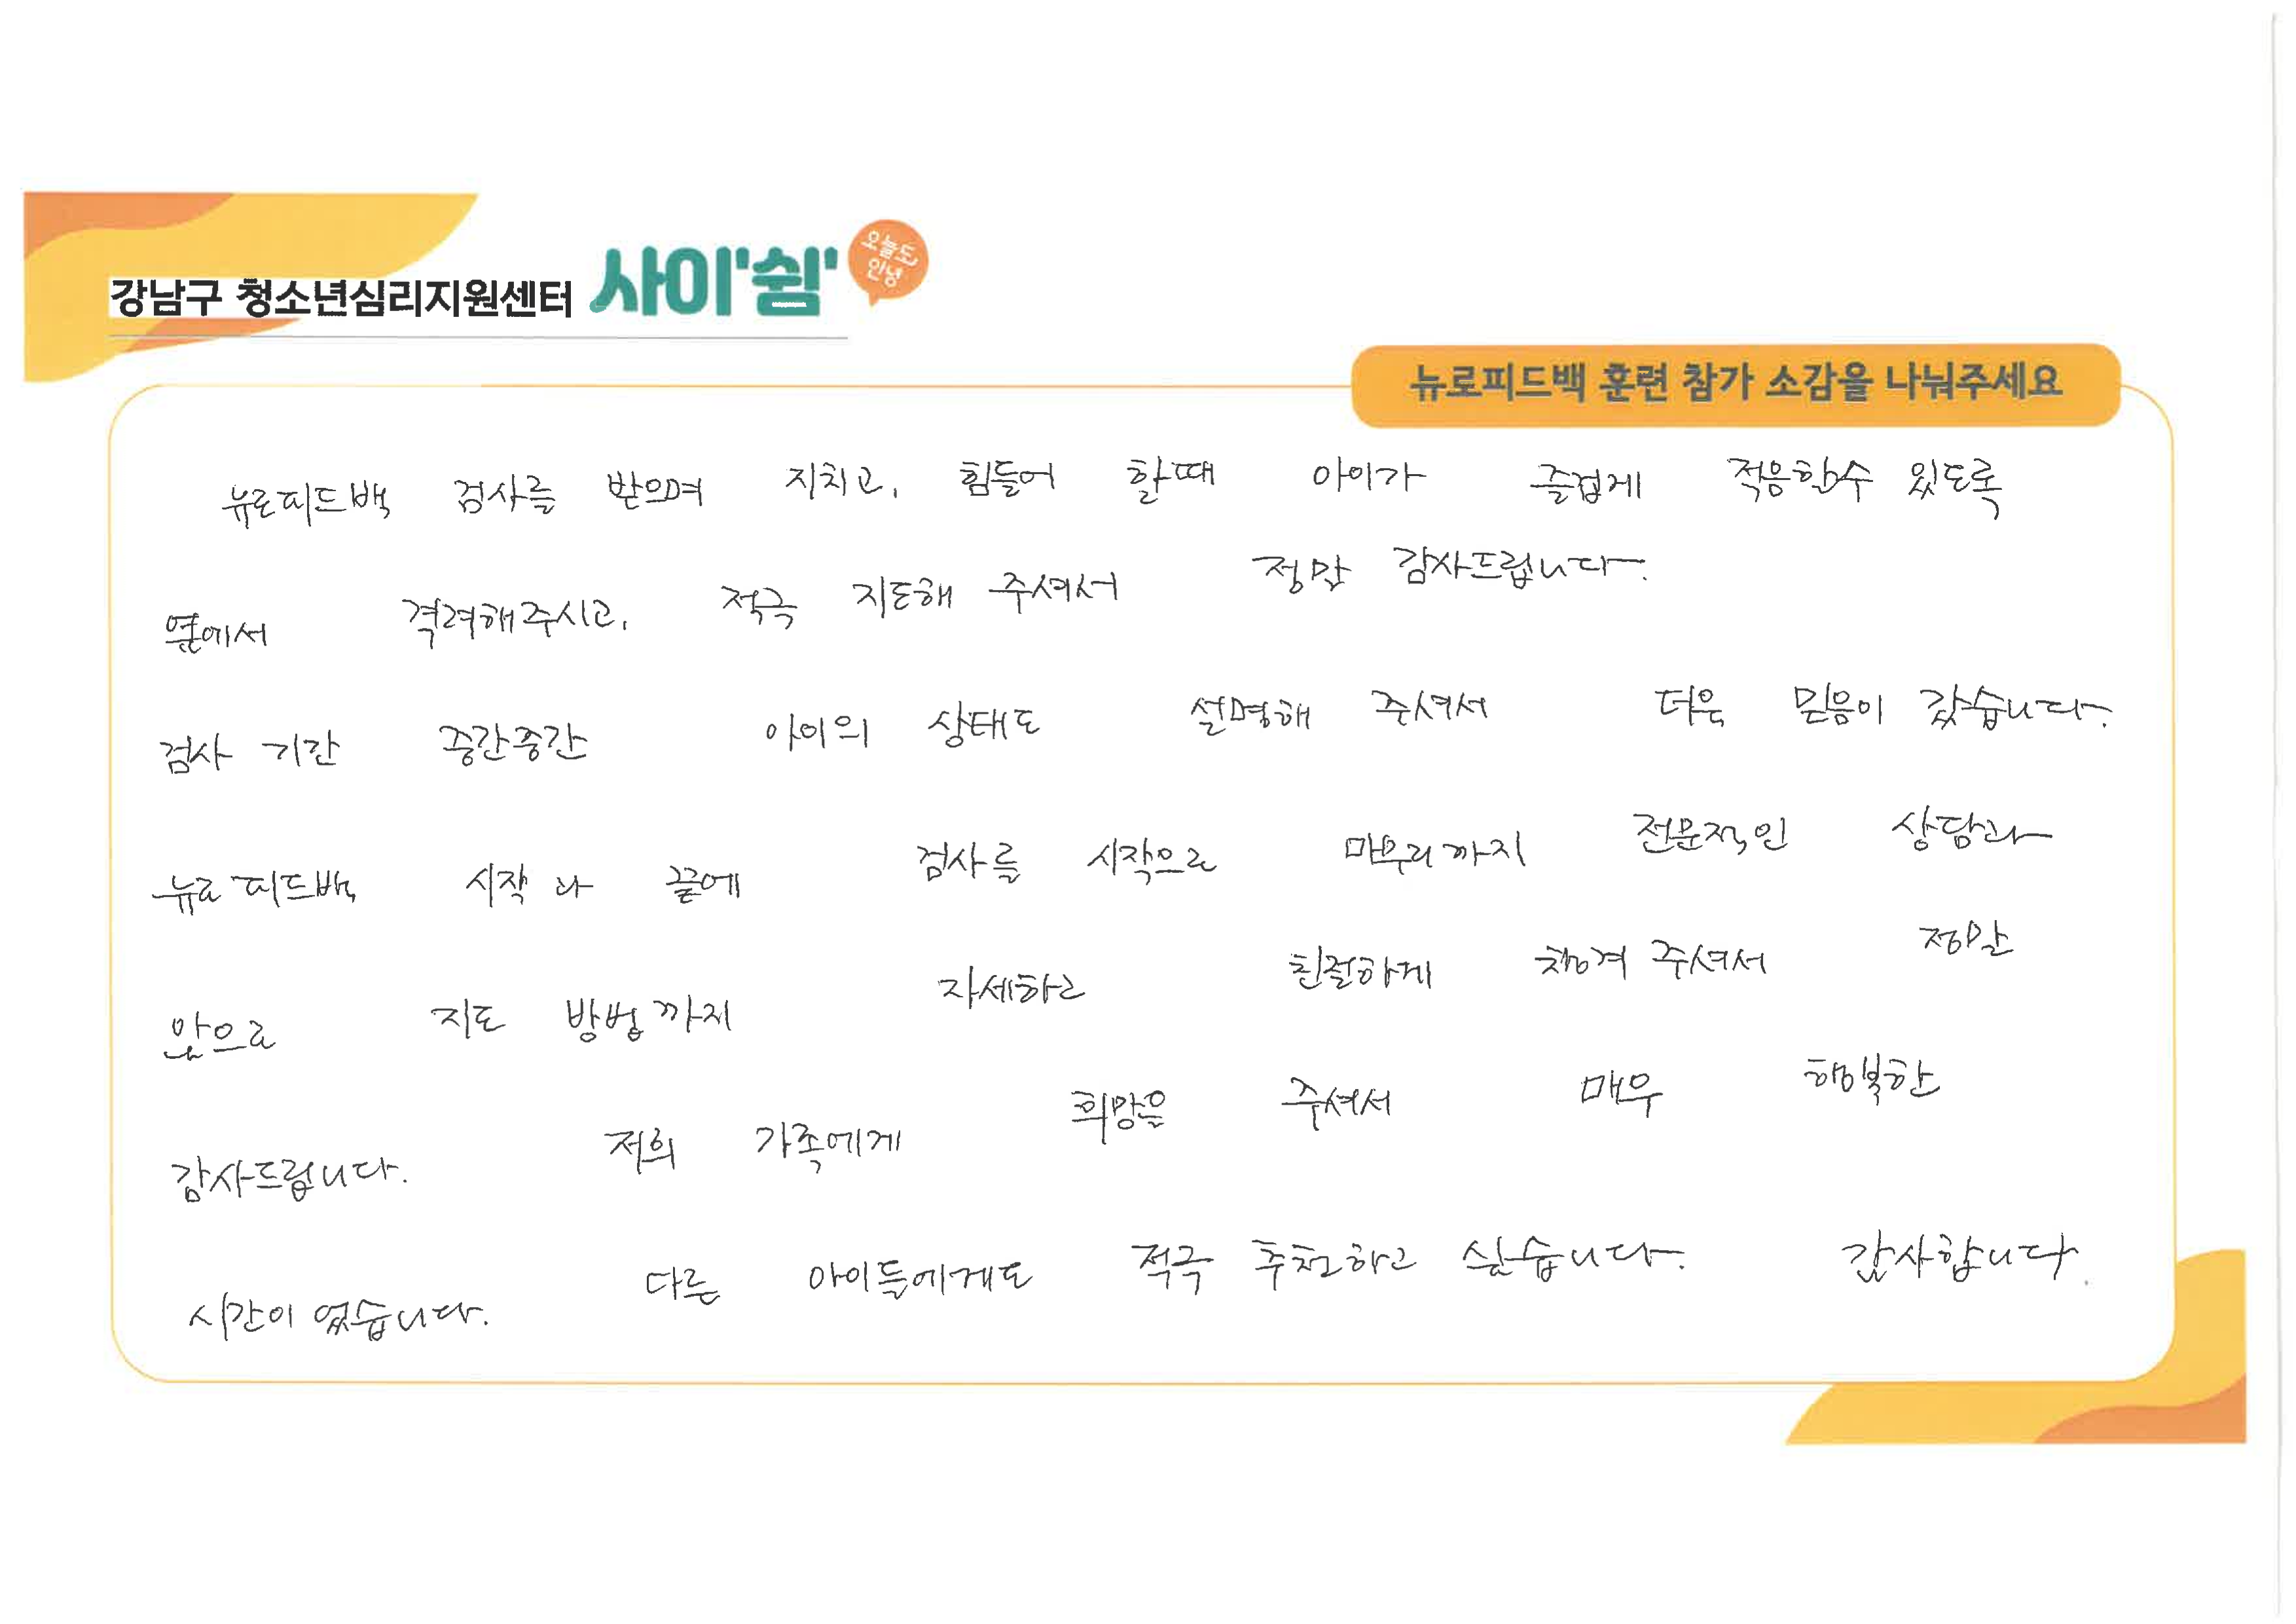 강남구 청소년심리지원센터 사이'쉼' 오늘도 안녕
뉴로피드백 훈련 참가 소감을 나눠주세요
뉴로피드백 검사를 받으며 지치고, 힘들어 할때 아이가 즐겁게 적응할수 있도록
옆에서 격려해주시고, 적극 지도해 주셔서 정말 감사드립니다.
검사 기간 중간중간 아이의 상태도 설명해 주셔서 더욱 믿음이 갔습니다.
뉴로피드백 시작과 끝에 검사를 시작으로 마무리까지 전문적인 상담과
앞으로 지도 방법까지 자세하고 친절하게 챙겨 주셔서 정말
감사드립니다. 저희 가족에게 희망을 주셔서 매우 행복한
시간이 였습니다. 다른 아이들에게도 적극 추천하고 싶습니다. 감사합니다.